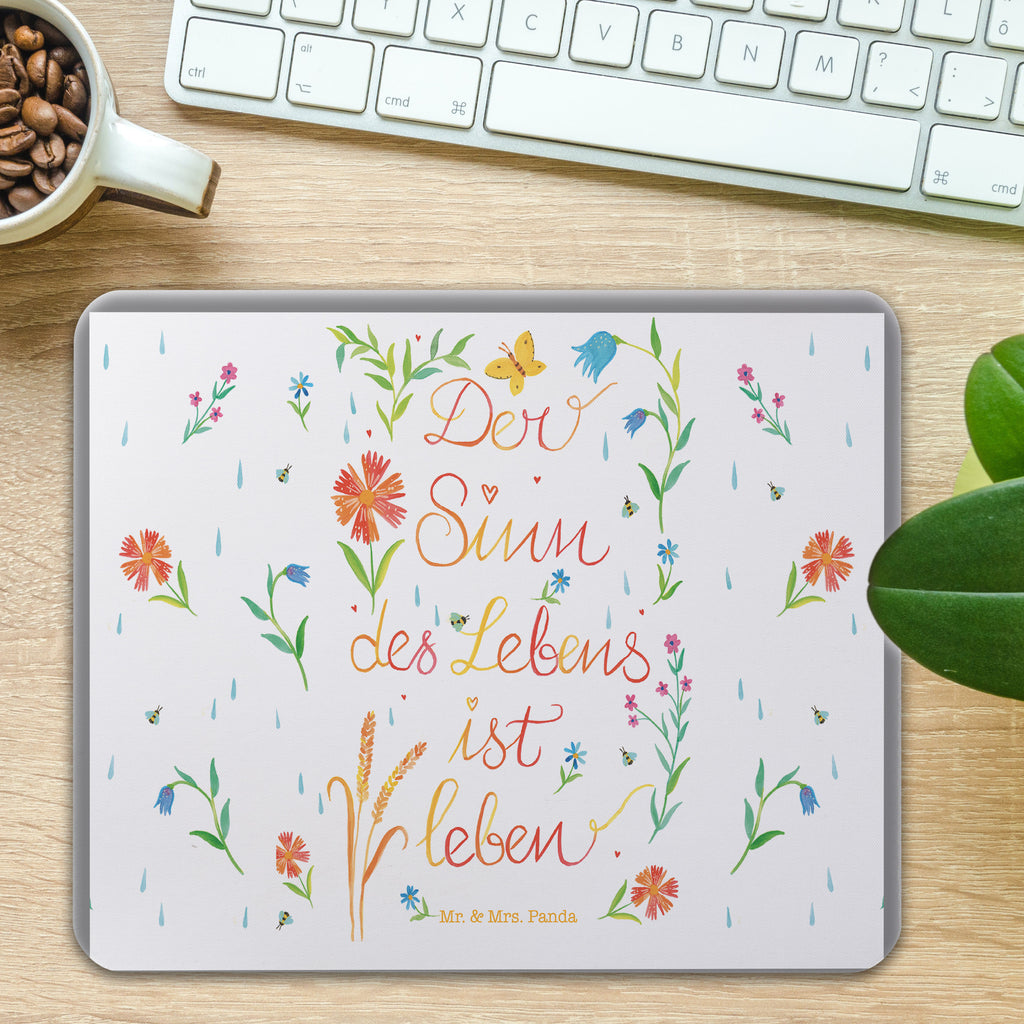 X C V B N M K L Ö
? <
: >
ctrl
alt
cmd ⌘
⌘ cmd
Der
Sinn
des Lebens
ist
leben
Mr. & Mrs. Panda